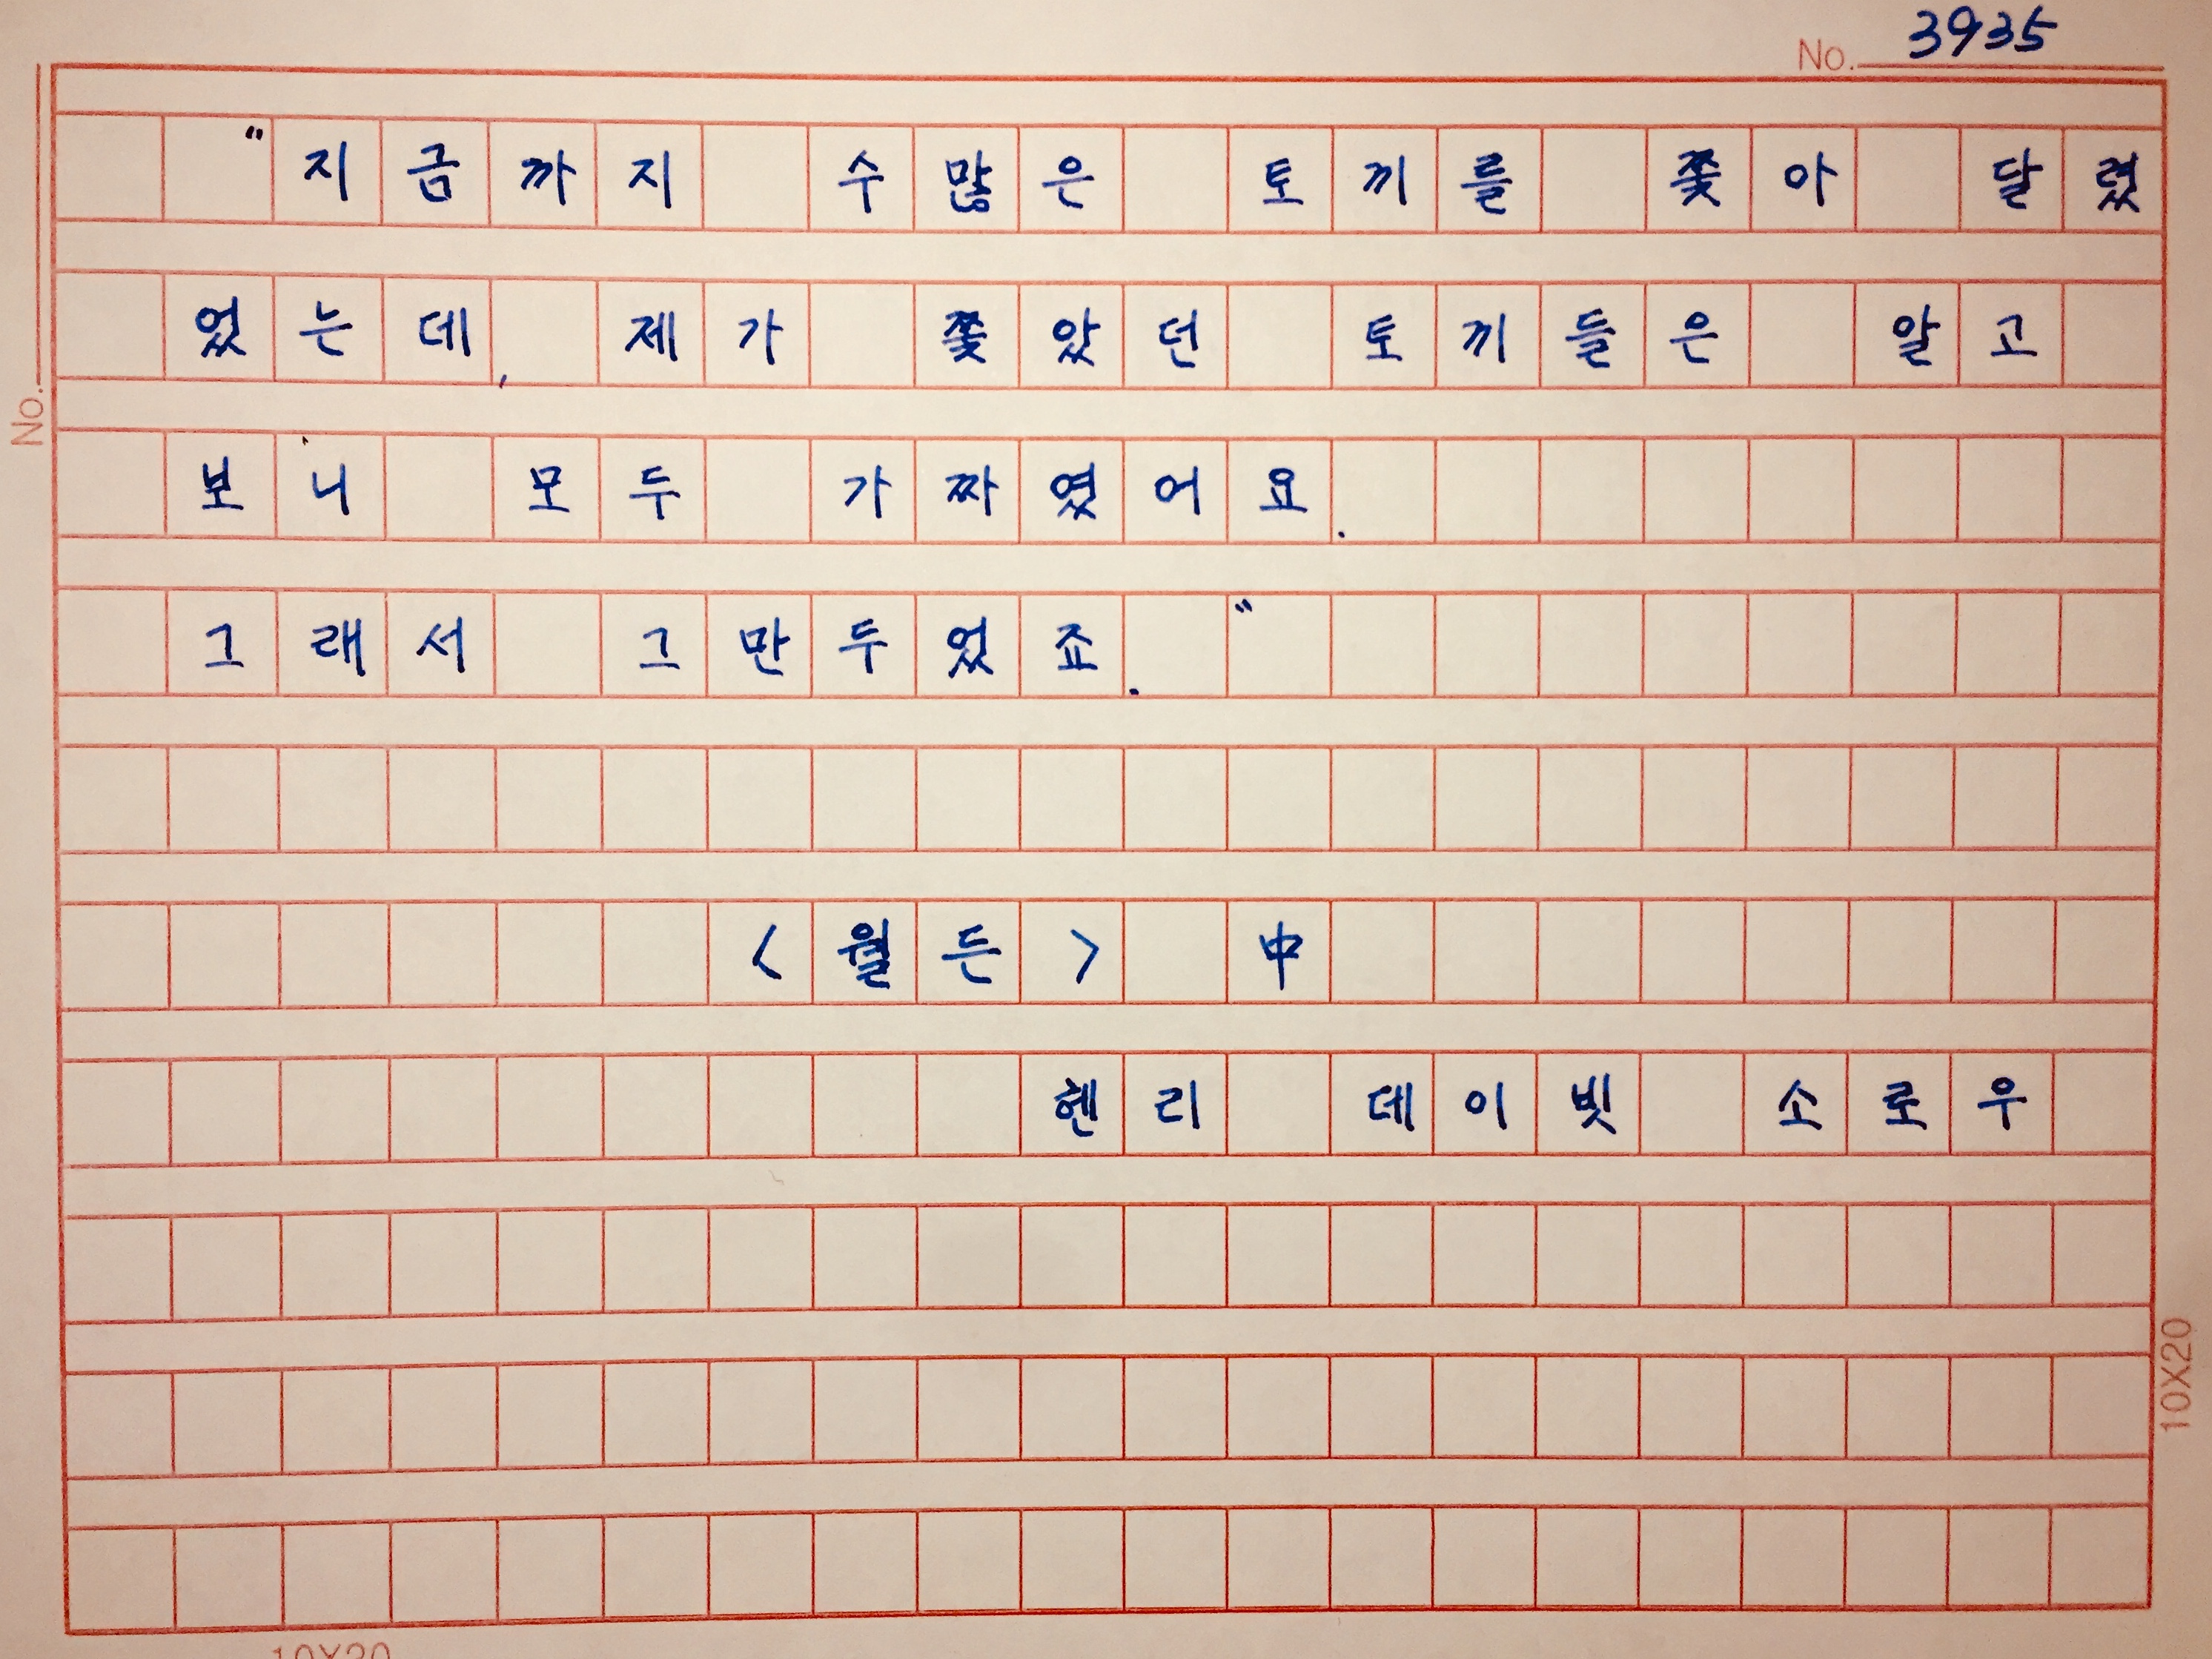 No. 3935
"지금까지 수많은 토끼를 쫓아 달렸
었는데, 제가 쫓았던 토끼들은 알고
보니 모두 가짜였어요.
그래서 그만두었죠."
<월든> 中
헨리 데이빗 소로우
No.
10X20
10X20